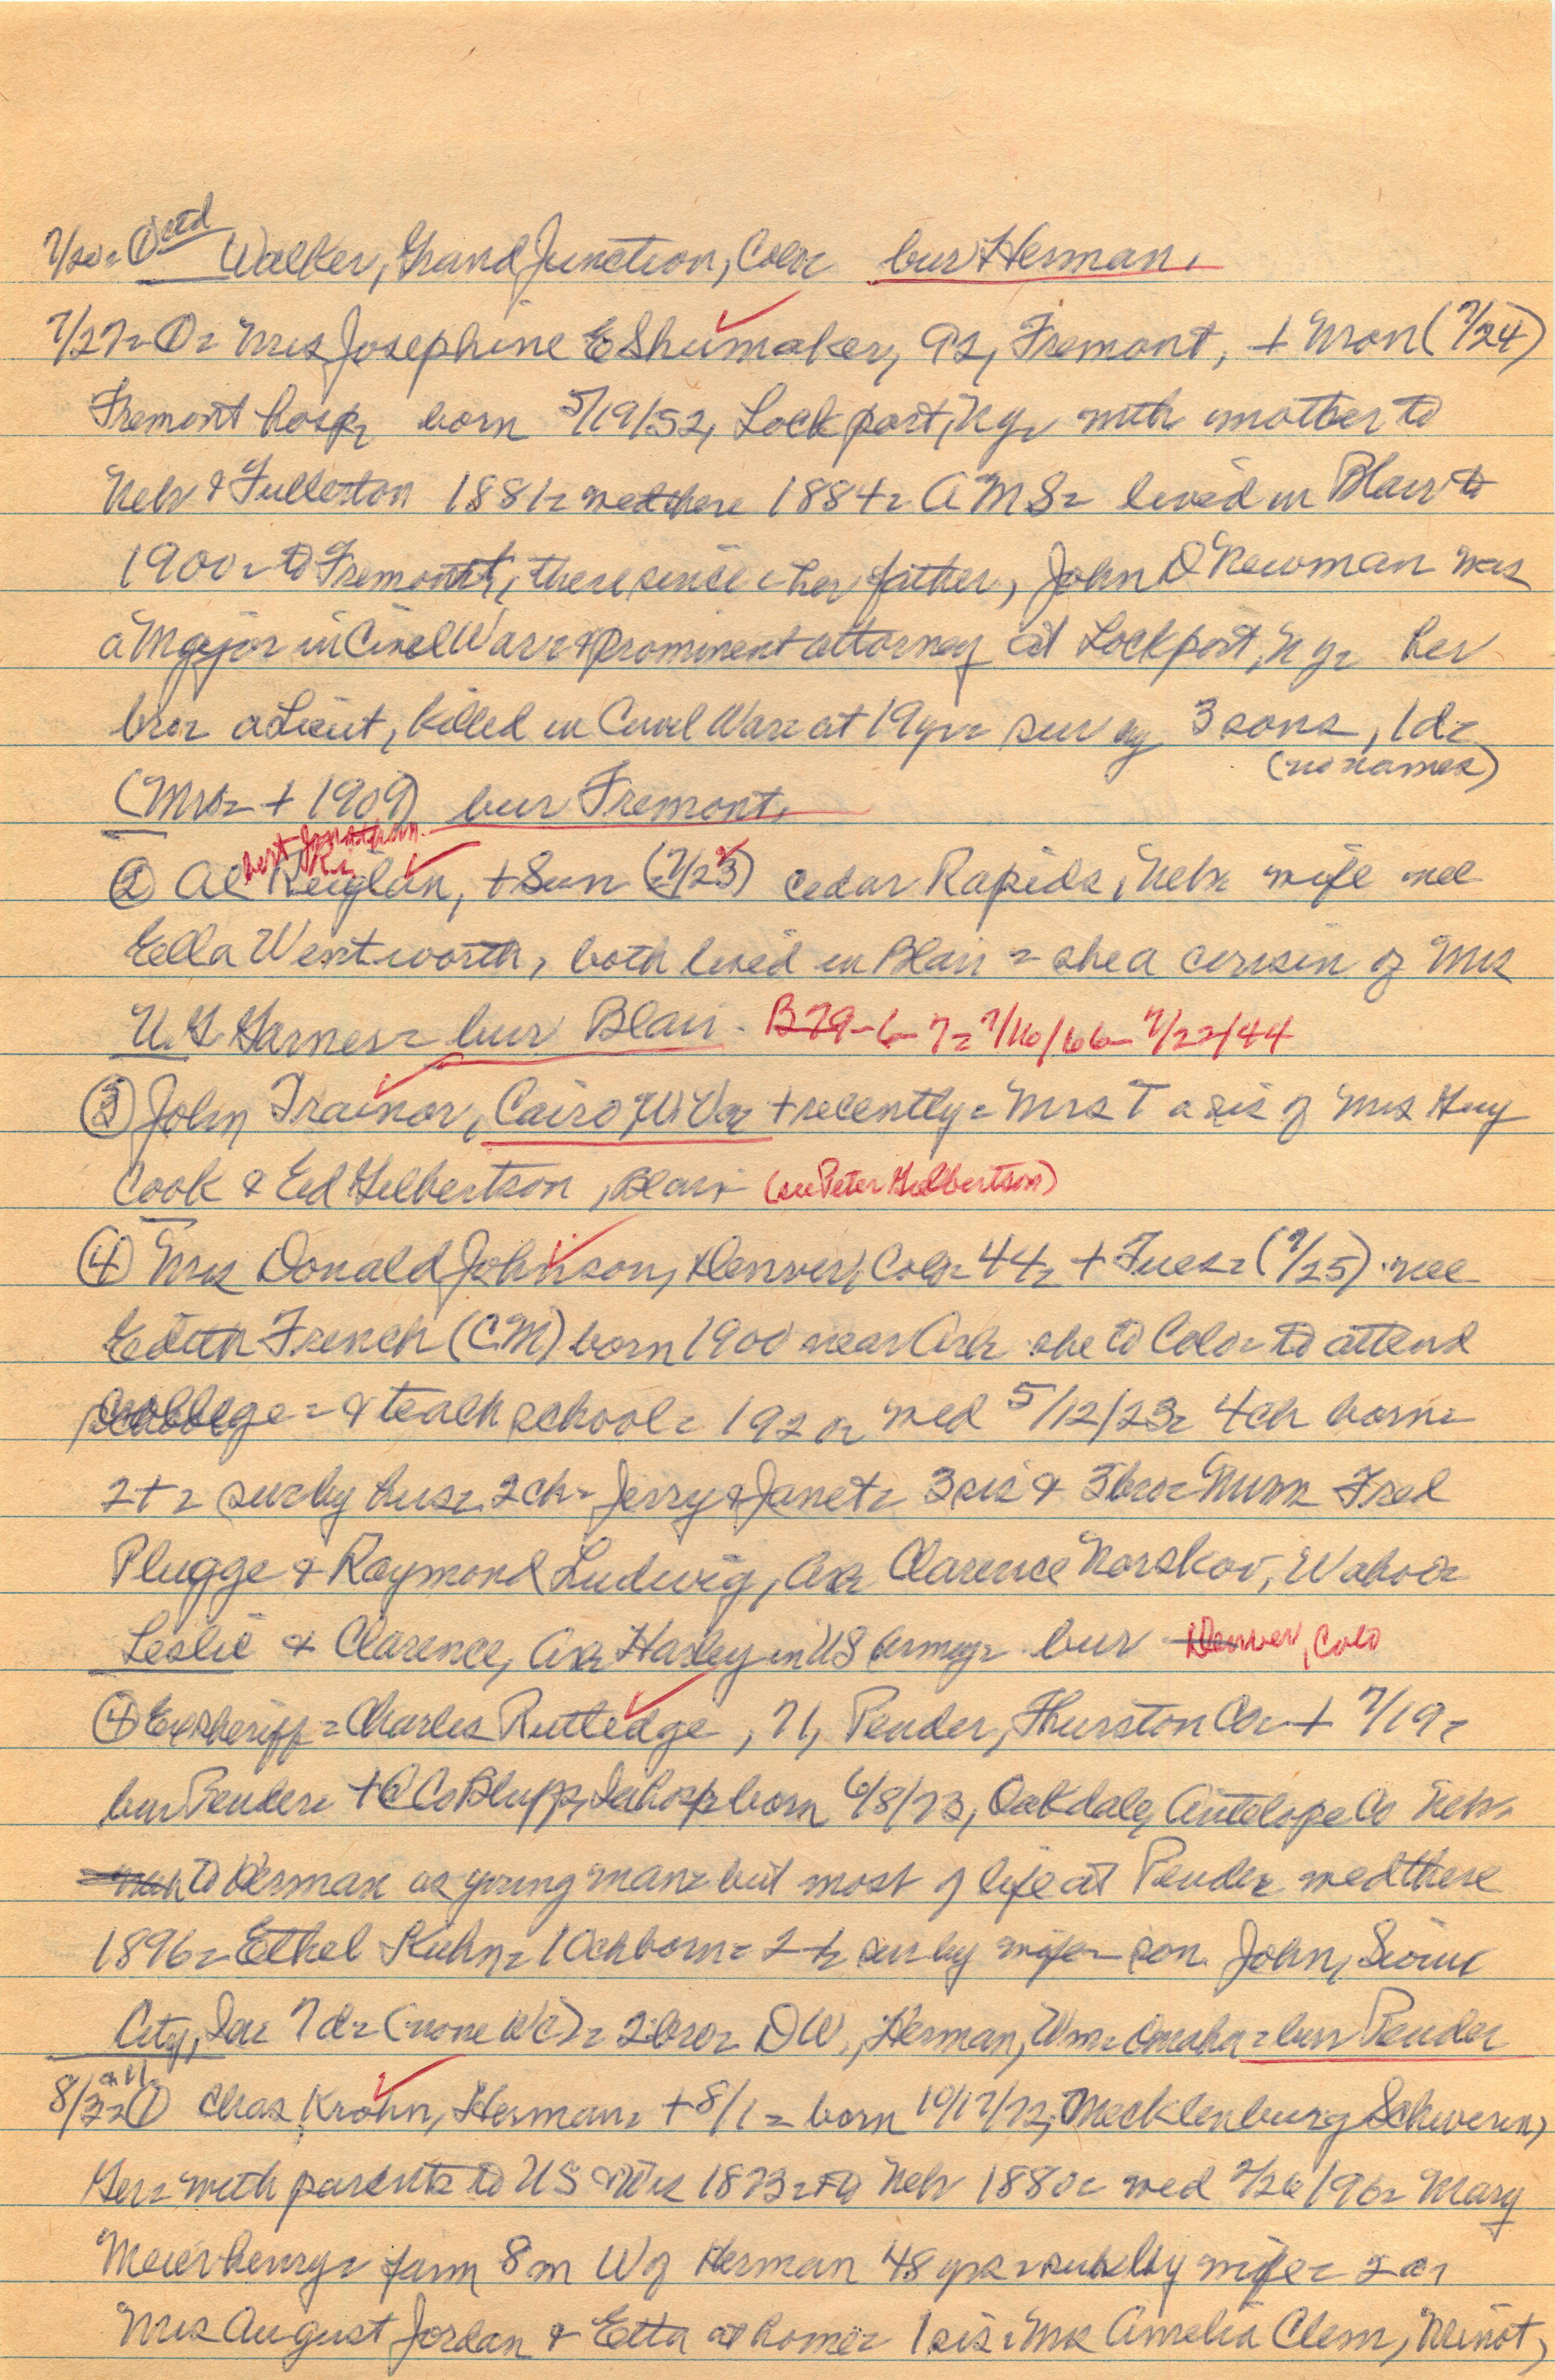 7/20 = ctd Walker, Grand Junction, Colo = bur Herman.
7/27 = ① = Mrs Josephine E Shumaker, 92, Fremont, + Mon (7/24)
Fremont hosp = born 5/19/52, Lockport, N Y = with mother to
Nebr & Fullerton 1881 = wed there 1884 = A M S = lived in Blair to
1900 = to Fremont, there since = her father, John O Newman was
a Major in Civil War & prominent attorney at Lockport, N Y = her
bro = a Lieut, killed in Civil War at 19 yr = sur by 3 sons, 1 d =
(no names)
(Mr S = + 1909) bur Fremont.
bert Jonathan
② Al Reiglan, + Sun (7/23) Cedar Rapids, Nebr wife nee
Ella Wentworth, both lived in Blair = she a cousin of Mrs
U. G. Harnes = bur Blair - B 79-6-7 = 7/16/66 - 7/22/44
③ John Trainor, Cairo W. Va + recently = Mrs T a sis of Mrs Guy
Cook & Ed Gilbertson, Blair (see Peter Gilbertson)
④ Mrs Donald Johnson, Denver, Colo = 44 = + Tues = (7/25) nee
Edith French (C M) born 1900 near Ark she to Colo = to attend
college = & teach school = 192 wed 5/12/23 = 4 ch born =
2 + = sur by hus = 2 ch = Jerry & Janet = 3 sis & 3 bro = Mmm Fred
Plugge & Raymond Ludwig, Ark Clarence Norskov, Wahoo =
Leslie & Clarence, Ark Harley in U S Army = bur Denver, Colo
④ Ex sheriff = Charles Rutledge, 71, Pender, Thurston Co = + 7/19 =
bur Pender = + @ Co Bluffs, Ia hosp = born 6/8/73, Oakdale, Antelope Co Nebr.
to Herman as young man = but most of life at Pender wed there
1896 = Ethel Kuhn = 10 ch born = 2 + = sur by wife = son John, Sioux
City, Ia = 7 d = (none WC) = 2 bro = D W, Herman, Wm = Omaha = bur Pender
8/3 = ① Chas Krohn, Herman = + 8/1 = born 10/17/72, Mecklenburg Schwerin,
Ger = with parents to U S & Wis 1873 = to Nebr 1880 = wed 2/26/96 = Mary
Meierhenry = farm 8 m W of Herman 48 yrs = sur by wife = 2 d,
Mrs August Jordan & Etta at home = 1 sis = Mrs Amelia Clem, Minot,